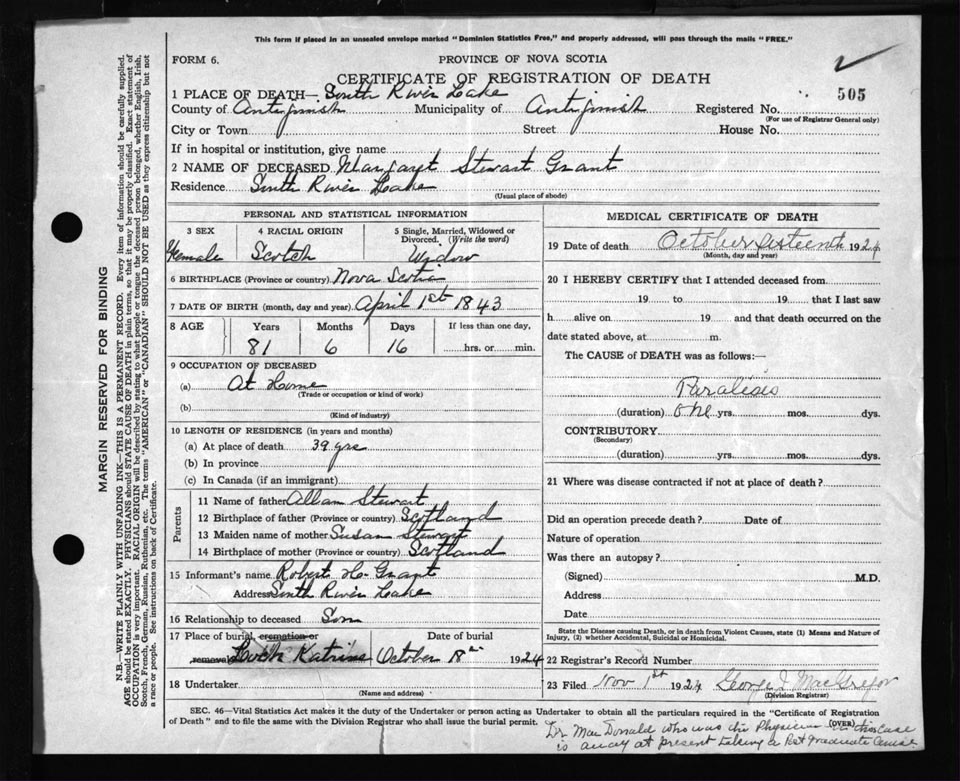 This form if placed in an unsealed envelope marked "Dominion Statistics Free," and properly addressed, will pass through the mails "FREE."
FORM 6.
PROVINCE OF NOVA SCOTIA
CERTIFICATE OF REGISTRATION OF DEATH
505
1 PLACE OF DEATH— South River Lake
County of Antigonish Municipality of Antigonish Registered No.
(For use of Registrar General only)
City or Town Street House No.
If in hospital or institution, give name
2 NAME OF DECEASED Margaret Stewart Grant
Residence South River Lake
(Usual place of abode)
PERSONAL AND STATISTICAL INFORMATION
3 SEX 4 RACIAL ORIGIN 5 Single, Married, Widowed or Divorced. (Write the word)
Female Scotch Widow
6 BIRTHPLACE (Province or country) Nova Scotia
7 DATE OF BIRTH (month, day and year) April 1st 1843
8 AGE Years Months Days If less than one day,
81 6 16 hrs. or min.
9 OCCUPATION OF DECEASED
(a) At Home
(Trade or occupation or kind of work)
(b)
(Kind of industry)
10 LENGTH OF RESIDENCE (in years and months)
(a) At place of death 39 yrs
(b) In province
(c) In Canada (if an immigrant)
Parents
11 Name of father Allan Stewart
12 Birthplace of father (Province or country) Scotland
13 Maiden name of mother Susan Stewart
14 Birthplace of mother (Province or country) Scotland
15 Informant's name Robert H. Grant
Address South River Lake
16 Relationship to deceased Son
17 Place of burial, cremation or Date of burial
removal Loch Katrine October 18th 1924
18 Undertaker
(Name and address)
MEDICAL CERTIFICATE OF DEATH
19 Date of death October sixteenth 1924
(Month, day and year)
20 I HEREBY CERTIFY that I attended deceased from
19 to 19 that I last saw
h alive on 19 and that death occurred on the
date stated above, at m.
The CAUSE of DEATH was as follows:—
Paralisis
(duration) one yrs. mos. dys.
CONTRIBUTORY
(Secondary)
(duration) yrs. mos. dys.
21 Where was disease contracted if not at place of death?
Did an operation precede death? Date of
Nature of operation
Was there an autopsy?
(Signed) M.D.
Address
Date
State the Disease causing Death, or in death from Violent Causes, state (1) Means and Nature of
Injury, (2) whether Accidental, Suicidal or Homicidal.
22 Registrar's Record Number
23 Filed Nov 1st 1924 George J. MacGregor
(Division Registrar)
SEC. 46—Vital Statistics Act makes it the duty of the Undertaker or person acting as Undertaker to obtain all the particulars required in the "Certificate of Registration
of Death" and to file the same with the Division Registrar who shall issue the burial permit.
(OVER)
Dr MacDonald who was the Physician in this case
is away at present taking a Post Graduate Course
MARGIN RESERVED FOR BINDING
N.B.—WRITE PLAINLY WITH UNFADING INK—THIS IS A PERMANENT RECORD. Every item of information should be carefully supplied.
AGE should be stated EXACTLY. PHYSICIANS should STATE CAUSE OF DEATH in plain terms, so that it may be properly classified. Exact statement of
OCCUPATION is very important. RACIAL ORIGIN will be described by stating to what people or tongue the deceased person belonged, whether English, Irish,
Scotch, French, German, Russian, Ruthenian, etc. The terms "AMERICAN" or "CANADIAN" SHOULD NOT BE USED as they express citizenship but not
a race or people. See instructions on back of Certificate.